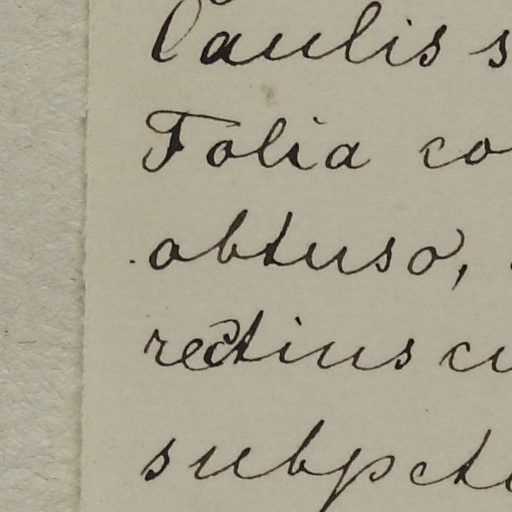 Caulis s
Folia co
obtuso,
rectius cu
subpet